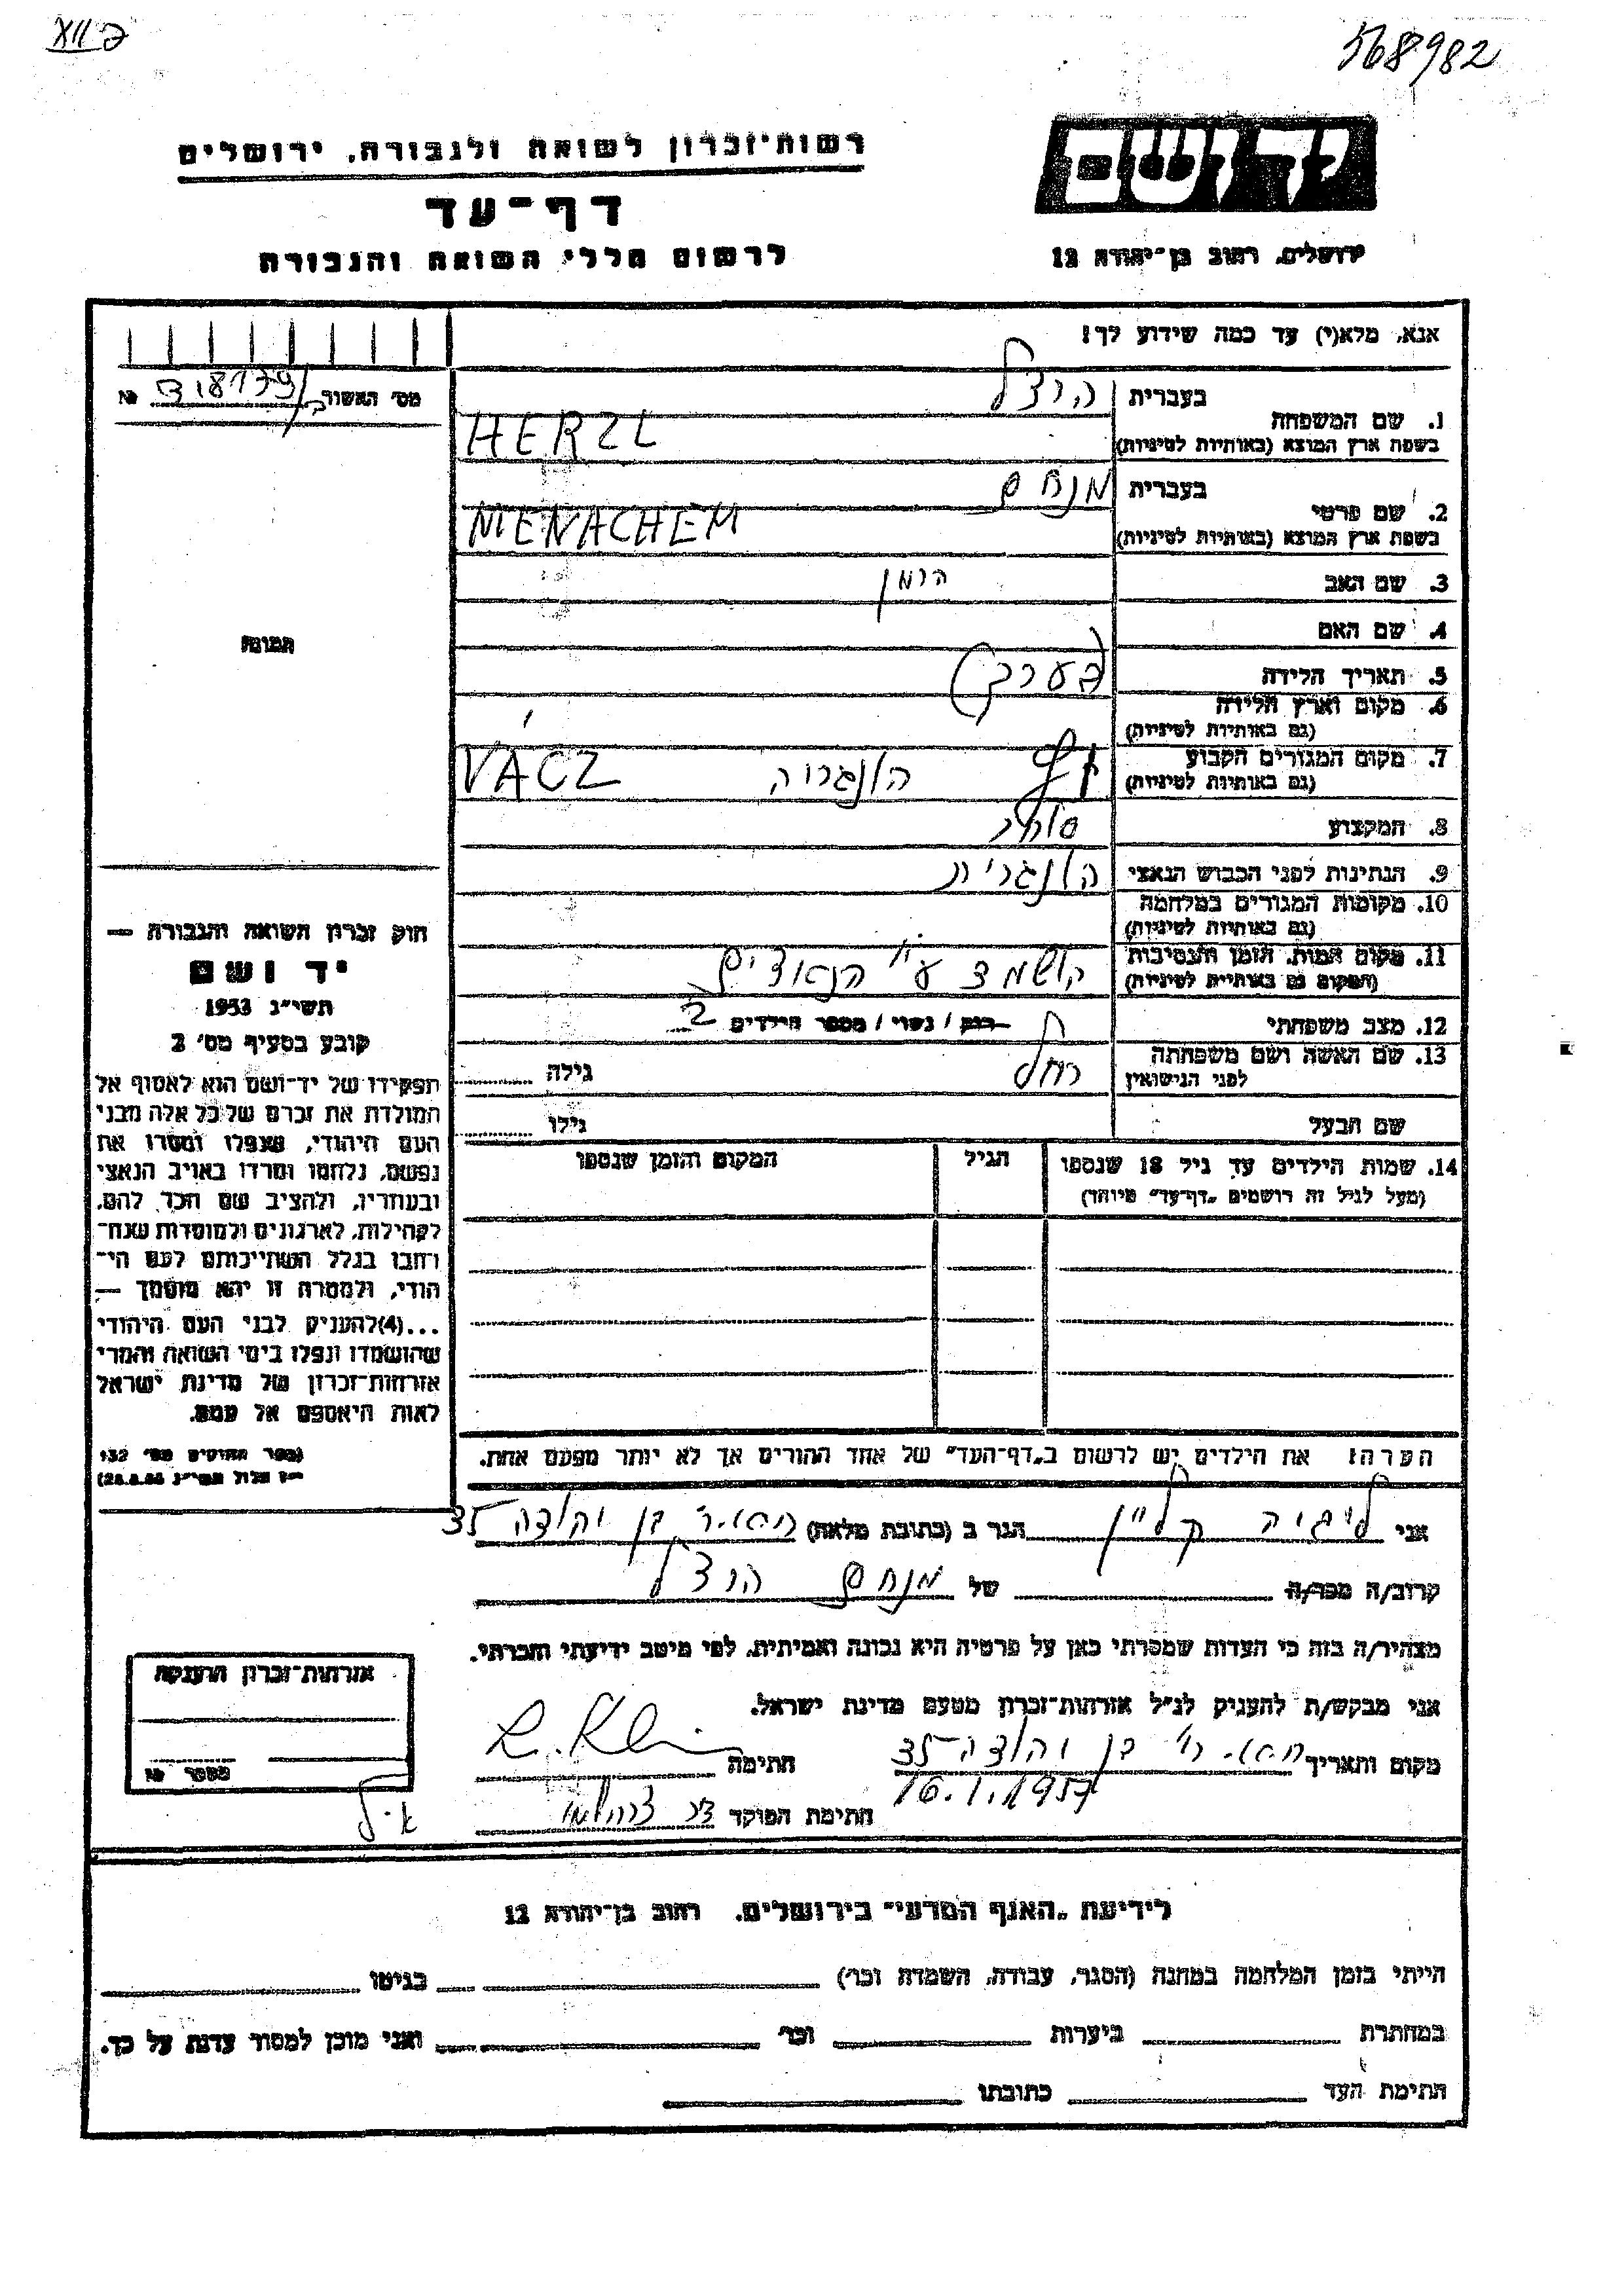 XII ק
568982
רשות־זכרון לשואה ולגבורה, ירושלים
דף־עד
לרשום חללי השואה והגבורה
יד ושם
ירושלים, רחוב בן־יהודה 12
אנא, מלא(י) עד כמה שידוע לך!
מס' האשור № 318179
1. שם המשפחה בעברית הרצל
בשפת ארץ המוצא (באותיות לטיניות) HERZL
2. שם פרטי בעברית מנחם
בשפת ארץ המוצא (באותיות לטיניות) MENACHEM
3. שם האב הרמן
4. שם האם
5. תאריך הלידה (בערך)
6. מקום וארץ הלידה
(גם באותיות לטיניות)
7. מקום המגורים הקבוע הונגריה VÁCZ
(גם באותיות לטיניות)
8. המקצוע סוחר
9. הנתינות לפני הכבוש הנאצי הונגרית
10. מקומות המגורים במלחמה
(גם באותיות לטיניות)
11. מקום המות, הזמן והנסיבות הושמד ע"י הנאצים
(המקום גם באותיות לטיניות)
12. מצב משפחתי רוק / נשוי / מספר הילדים 2
13. שם האשה ושם משפחתה
לפני הנישואין רחל גילה
שם הבעל גילו
14. שמות הילדים עד גיל 18 שנספו הגיל המקום והזמן שנספו
(מעל לגיל זה רושמים „דף־עד" מיוחד)
הערה: את הילדים יש לרשום ב„דף־העד" של אחד ההורים אך לא יותר מפעם אחת.
תמונה
חוק זכרון השואה והגבורה —
יד ושם
תשי"ג 1953
קובע בסעיף מס' 2
תפקידו של יד־ושם הוא לאסוף אל
המולדת את זכרם של כל אלה מבני
העם היהודי, שנפלו ומסרו את
נפשם, נלחמו ומרדו באויב הנאצי
ובעוזריו, ולהציב שם וזכר להם,
לקהילות, לארגונים ולמוסדות שנח־
רבו בגלל השתייכותם לעם הי־
הודי, ולמטרה זו יהא מוסמך —
...(4) להעניק לבני העם היהודי
שהושמדו ונפלו בימי השואה והמרי
אזרחות־זכרון של מדינת ישראל
לאות היאספם אל עמם.
(ספר החוקים מס' 132
אני ליביה קליין הגר ב (כתובת מלאה) רח' בן יהודה
קרוב/ה מכר/ה של מנחם הרצל
מצהיר/ה בזה כי העדות שמסרתי כאן על פרטיה היא נכונה ואמיתית, לפי מיטב ידיעתי והכרתי.
אני מבקש/ת להעניק לנ"ל אזרחות־זכרון מטעם מדינת ישראל.
מקום ותאריך רח' בן יהודה 16.1.1957 חתימה L. Klein
חתימת הפוקד
אזרחות־זכרון הוענקה
מספר №
לידיעת „האגף המדעי" בירושלים, רחוב בן־יהודה 12
הייתי בזמן המלחמה במחנה (הסגר, עבודה, השמדה וכו') בגיטו
במחתרת ביערות וכו' ואני מוכן למסור עדות על כך.
חתימת העד כתובתו